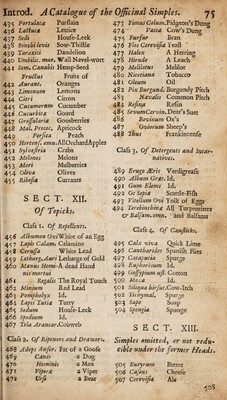 Introd. A Catalogue of the Officinal Simples. 75
435 Portulaca Purslain
436 Lattuca Lettice
437 Sedi House-Leek
438 Sonchi levis Sow-Thistle
439 Taraxici Dandelion
440 Umbilic. mur. Wall Navel-wort
441 Sem. Canabis Hemp-Seed
Fructus Fruits of
442 Aurant. Oranges
443 Limonum Lemons
444 Citri Citron
445 Cucumerum Cucumber
446 Cucurbita Gourd
447 Grossularia Gooseberries
448 Mal. Præcoc. Apricock
449 Persea Peach
450 Hortens. omn. All Orchard Apples
451 Sylvestria Crabs
452 Melones Melons
453 Mori Mulberries
454 Oliva Olives
455 Ribesia Currants
SECT. XII.
Of Topicks.
Class 1. Of Repellents.
456 Albumen Ovi White of an Egg
457 Lapis Calam. Calamine
458 Cerussa White Lead
459 Litharg. Auri Letharge of Gold
460 Manus Homi- A dead Hand
nis mortui
461 Regalis The Royal Touch
462 Minium Red Lead
463 Pompholyx Id.
464 Lapis Tutia Tutty
465 Sedum House-Leek
466 Spodium Id.
467 Tela Aranear. Cobweb
Class 2. Of Ripeners and Drawers.
468 Adeps Anser. Fat of a Goose
469 Canis a Dog
470 Hominis a Men
471 Viperæ a Viper
472 Ursi a Bear
473 Fimus Colum. Pidgeon's Dung
474 Vacca Cow's Dung
475 Furfur Bran
476 Flos Cerevisiæ Yest
477 Halec A Herring
478 Hirudo A Leach
479 Melilotus Melilot
480 Nicotiana Tobacco
481 Oleum Oil
482 Pix Burgund. Burgundy Pitch
483 Navalis Common Pitch
484 Resina Resin
485 Sevum Cervin. Deer's Suet
486 Bovinum Ox's
487 Ovierum Sheep's
488 Thus Frankincense
Class 3. Of Detergents and Incar-
natives.
489 Ærugo Æris Verdigrease
490 Album Græc. Id.
491 Gum Elemi Id.
492 Os Sepiæ Scuttle-Fish
493 Vitellum Ovi Yolk of Eggs
494 Terebinthina All Turpentines
& Balsam. omn. and Balsams
Class 4. Of Causticks.
495 Calx viva Quick Lime
496 Cantharides Spanish Flies
497 Catapucia Spurge
498 Euphorbium Id.
499 Gossypium ust. Cotton
500 Moxa Id.
501 Siliqua hirsut. Cow-Itch
502 Tithymal. Spurge
503 Sapo Soap
504 Spongia Spunge
SECT. XIII.
Simples omitted, or not redu-
cible under the former Heads.
505 Butyrum Butter
506 Caseus Cheese
507 Cerevisia Ale
508